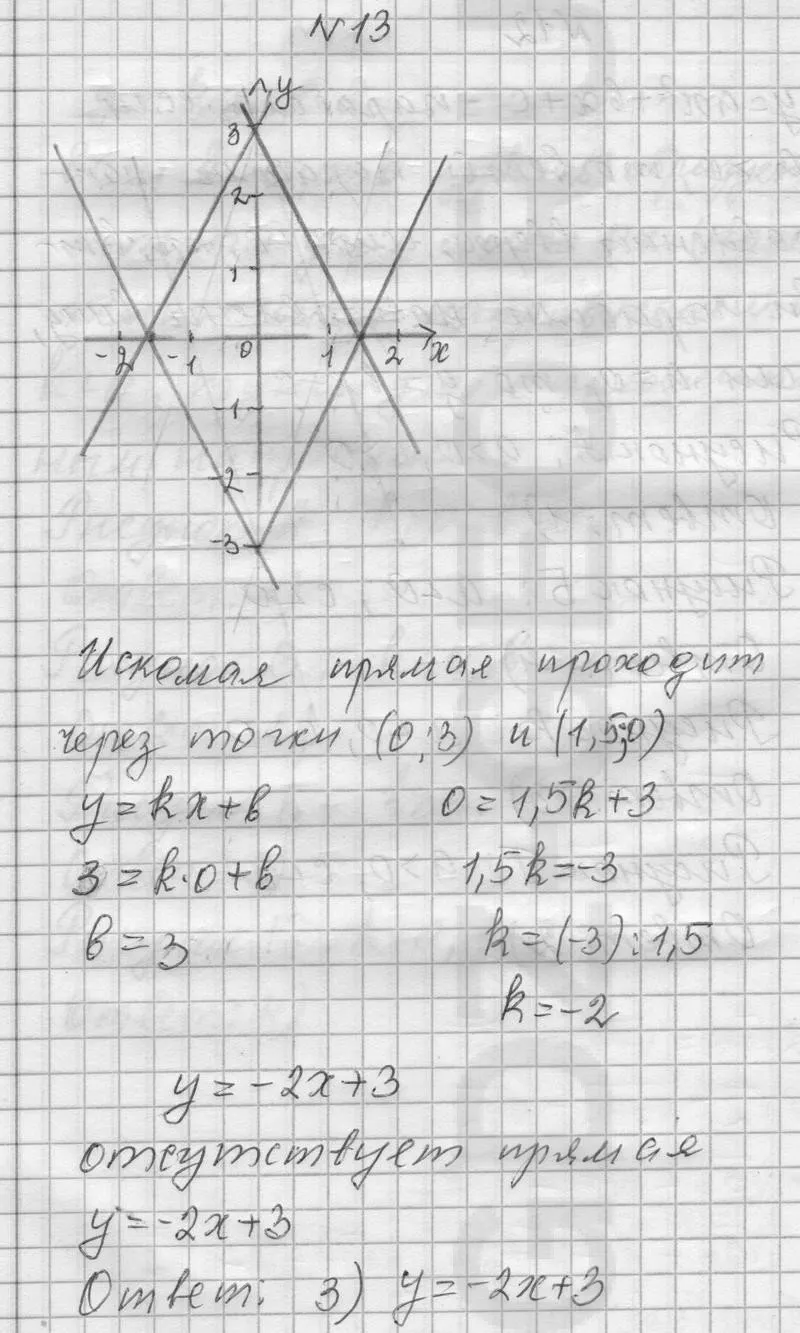 N13
y
3
2
1
-2 -1 0 1 2 x
-1
-2
-3
Искомая прямая проходит
через точки (0;3) и (1,5;0)
y=kx+b 0=1,5k+3
3=k·0+b 1,5k=-3
b=3 k=(-3):1,5
k=-2
y=-2x+3
отсутствует прямая
y=-2x+3
Ответ: 3) y=-2x+3